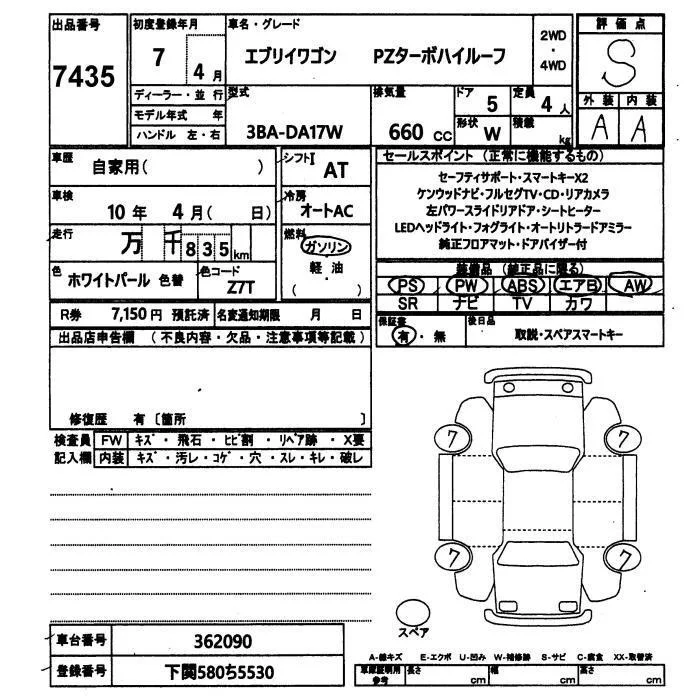 出品番号 初度登録年月 車名・グレード 評価点
7435 7 4月 エブリイワゴン PZターボハイルーフ 2WD・4WD S
ディーラー・並行 型式 排気量 ドア 5 定員 4人 外装 内装
モデル年式 年 形状 W 積載 kg A A
ハンドル 左・右 3BA-DA17W 660 CC
車歴 自家用( ) シフト AT
車検 10年 4月( 日) 冷房 オートAC
走行 万 千 835 km 燃料 ガソリン
軽・油
( )
色 ホワイトパール 色替 色コード Z7T
R券 7,150円 預託済 名変通知期限 月 日
セールスポイント (正常に機能するもの)
セーフティサポート・スマートキーX2
ケンウッドナビ・フルセグTV・CD・リアカメラ
左パワースライドリアドア・シートヒーター
LEDヘッドライト・フォグライト・オートリトラドアミラー
純正フロアマット・ドアバイザー付
装備品 (純正品に限る)
PS PW ABS エアB AW
SR ナビ TV カワ
保証書 有・無 後日品 取説・スペアスマートキー
出品店申告欄 (不良内容・欠品・注意事項等記載)
修復歴 有〔箇所 〕
検査員 FW キズ・飛石・ヒビ割・リペア跡・X要
記入欄 内装 キズ・汚レ・コゲ・穴・スレ・キレ・破レ
7 7
7 7
スペア
車台番号 362090
登録番号 下関580ち5530
A-線キズ E-エクボ U-凹み W-補修跡 S-サビ C-腐食 XX-取替済
車庫証明用参考 長さ cm 幅 cm 高さ cm